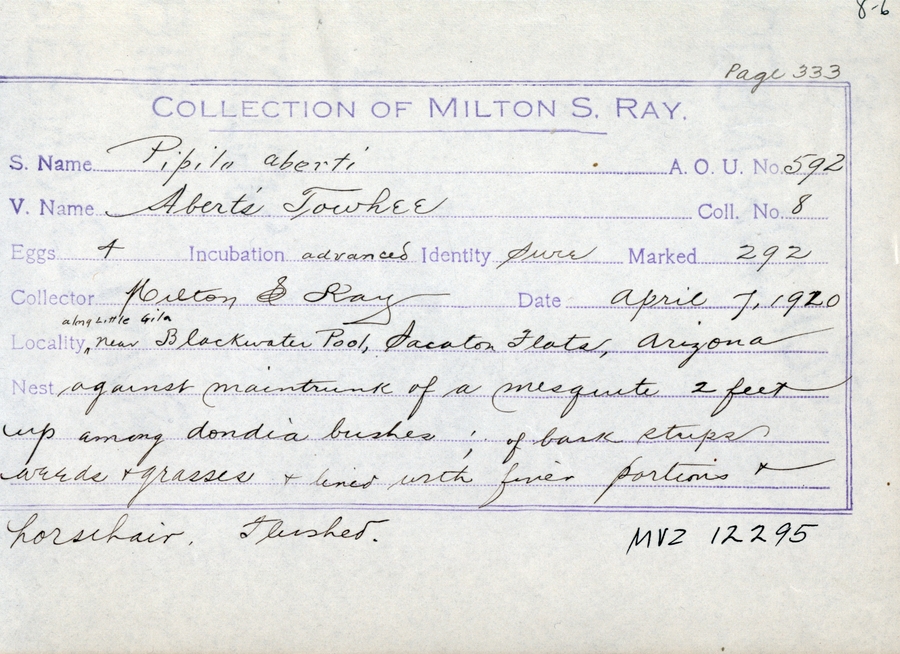 8-6
Page 333
COLLECTION OF MILTON S. RAY.
S. Name Pipilo aberti A. O. U. No. 592
V. Name Abert's Towhee Coll. No. 8
Eggs 4 Incubation advanced Identity sure Marked 292
Collector Milton S Ray Date April 7, 1920
along Little Gila
Locality, near Blackwater Pool, Sacaton Flats, Arizona
Nest against maintrunk of a mesquite 2 feet
up among dondia bushes; of bark strips
weeds + grasses + lined with finer portions +
horsehair. Flushed.
MVZ 12295